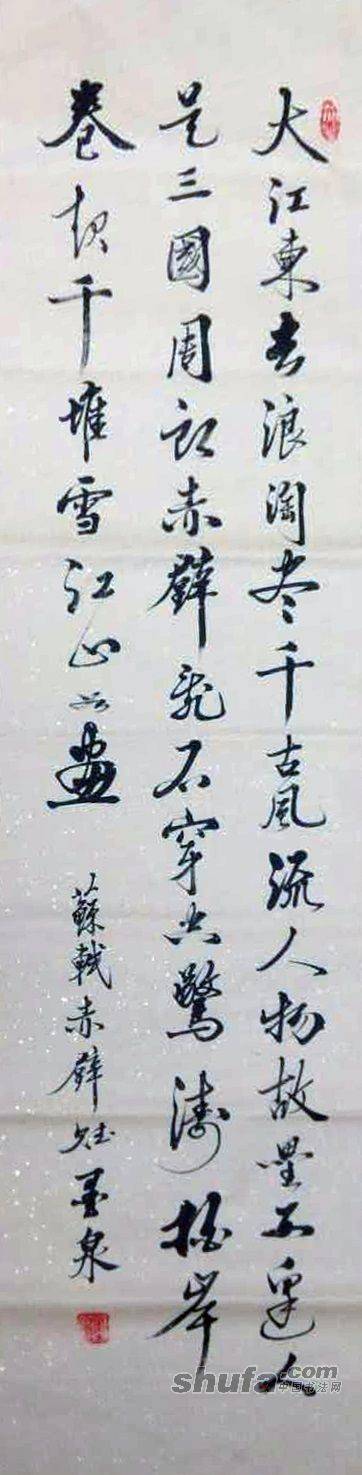 大江東去浪淘尽千古風流人物故壘西邊人
是三國周郎赤壁乱石穿空驚濤拍岸
卷起千堆雪江山如畫
蘇軾赤壁賦墨泉
shufa.com
中国书法网